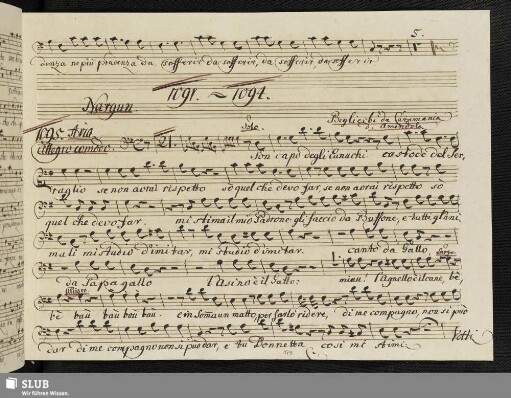 5.
denza nè più pacienza da sofferir da sofferir, da sofferir da sofferir
Nargun. 1091. ~ 1094.
Solo.
1095. Aria
21.
Allegro comodo
Son capo degli Eunuchi custode del Ser,
raglio se non avrai rispetto sò quel che devo far, se non avrai rispetto so
quel che devo far. mi stima il mio Padrone gli faccio da Buffone, e tutti gl'Ani
mali mi studio d'imitar, mi studio d'imitar. canto da Gallo
da Papagallo l'asino è il Gatto: miau! l'agnello il cane, bè,
bè bau bau bau bau. e in somma un matto per farlo ridere, di me compagno, non si può
dar di me compagno non si può dar, e tu Donnetta così mi stimi:
Volti
SLUB
Wir führen Wissen.